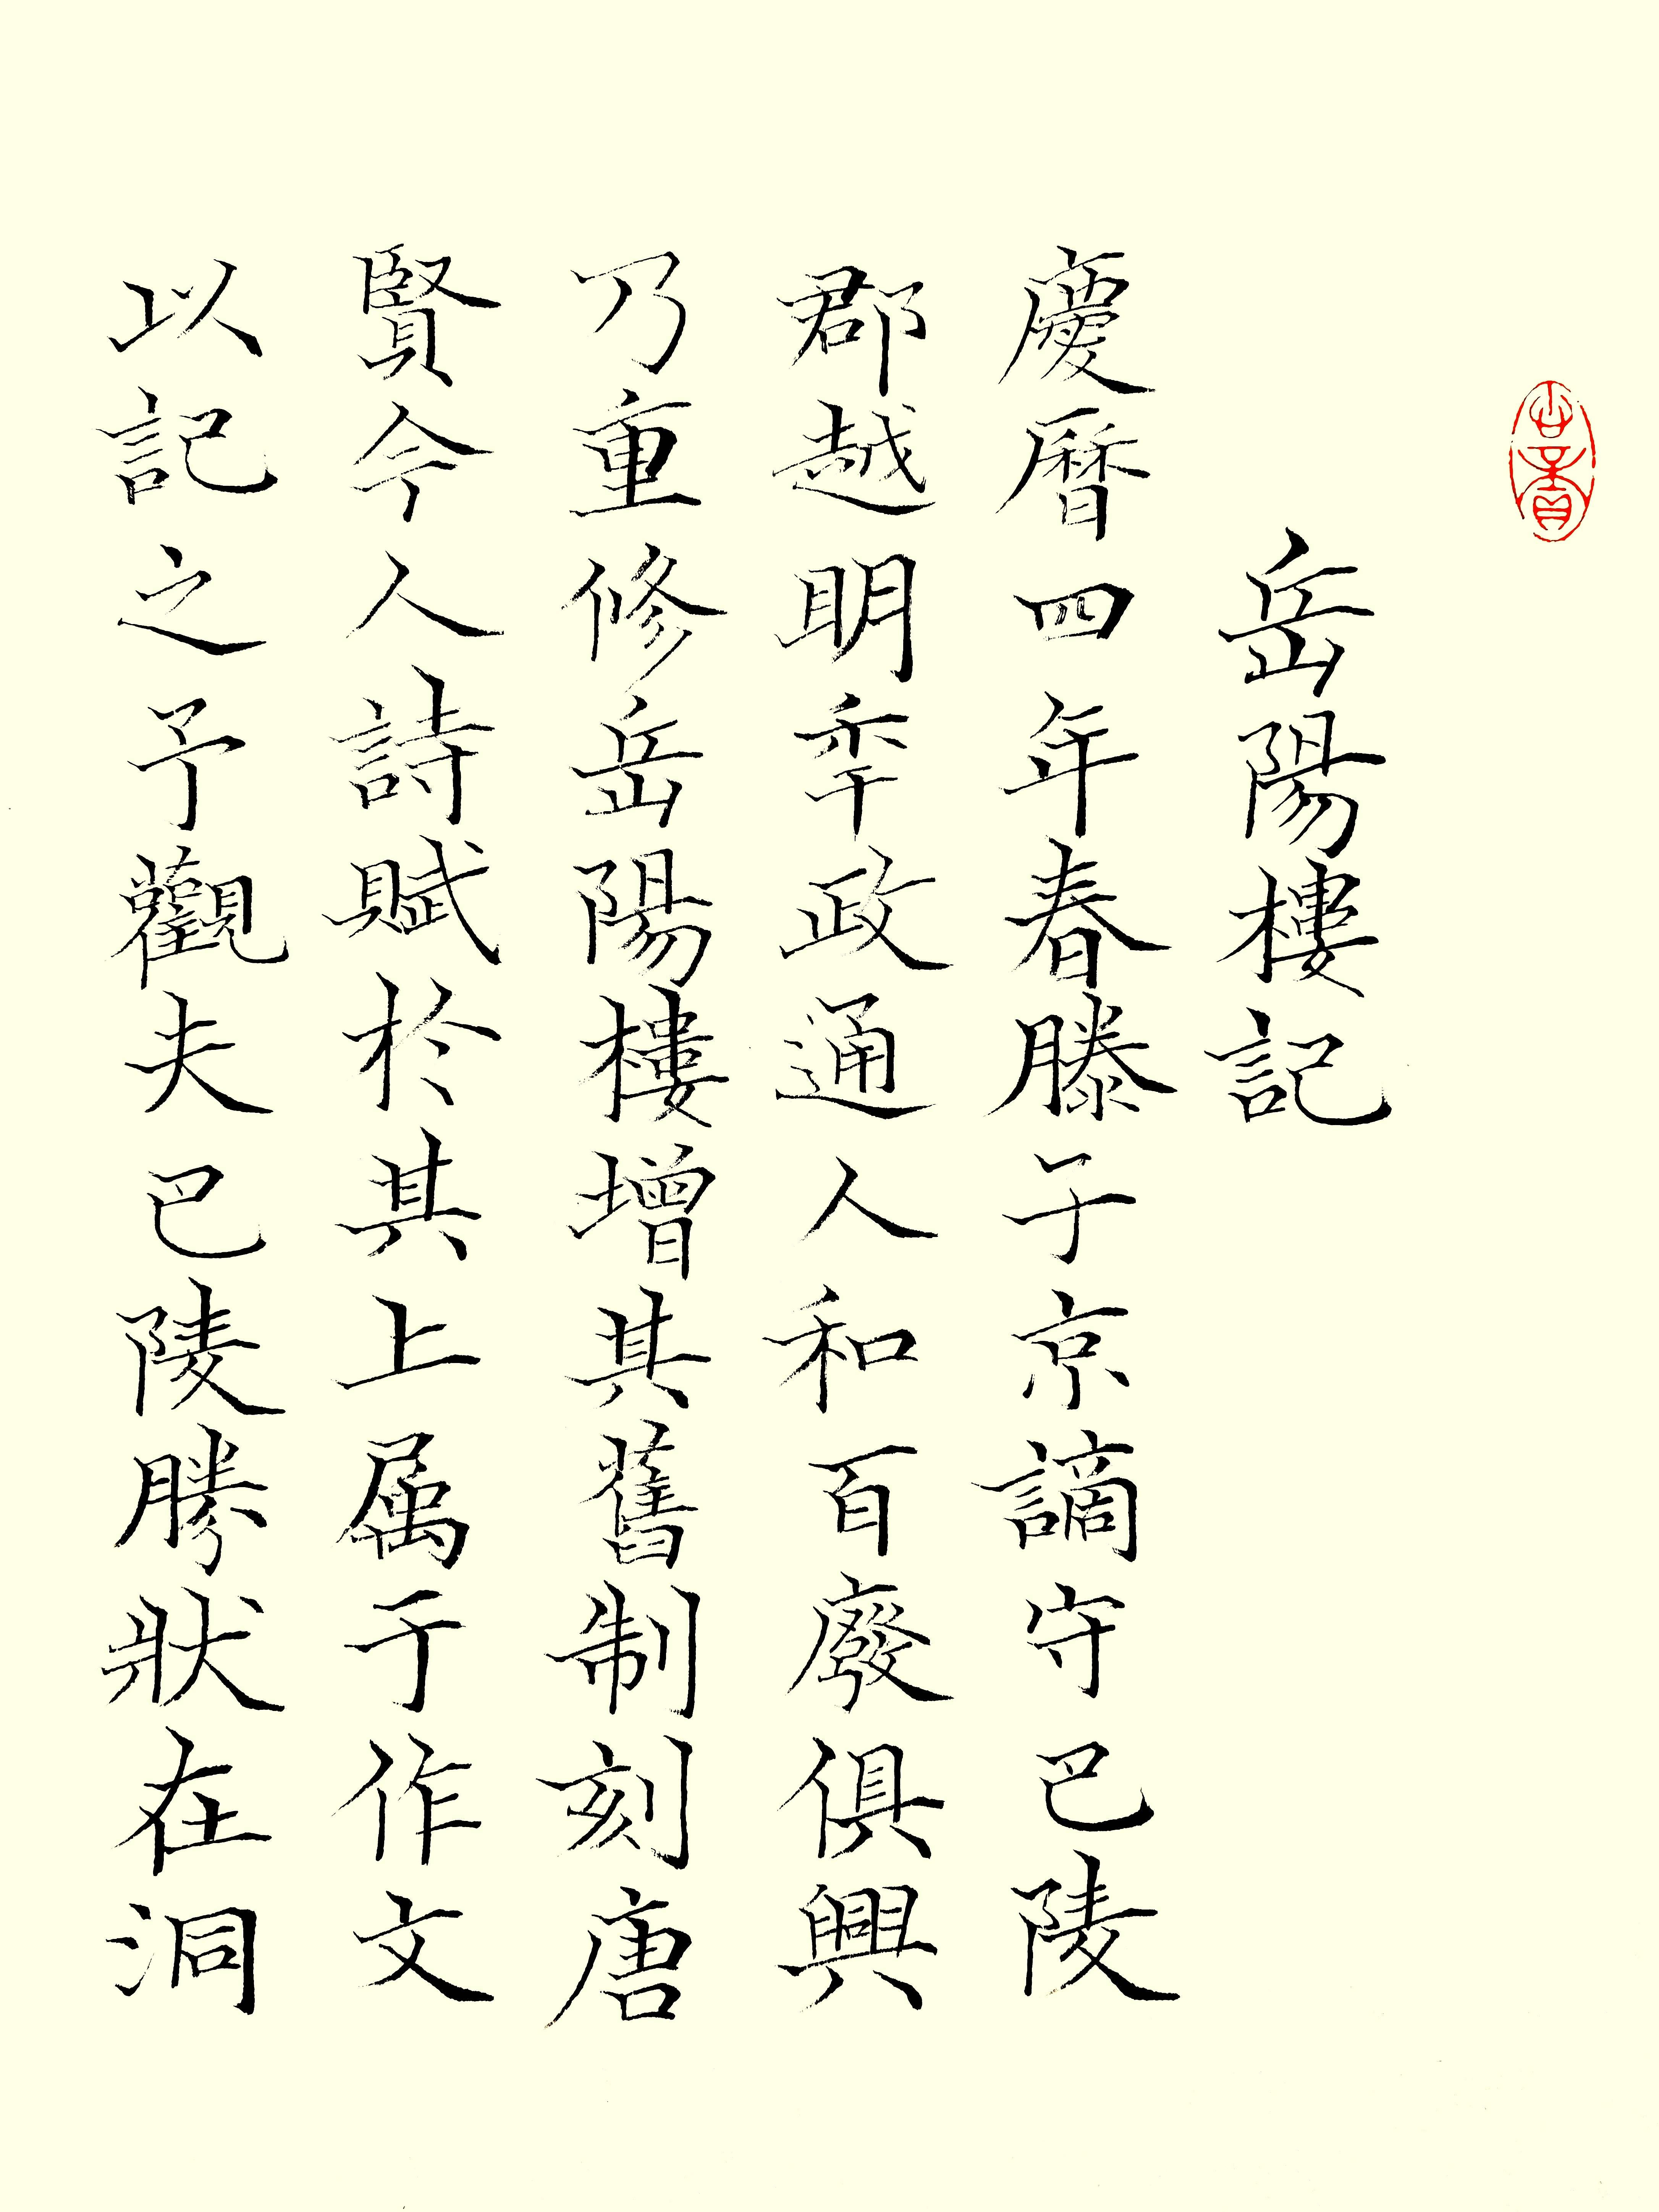 岳陽樓記
慶曆四年春滕子京謫守巴陵
郡越明秊政通人和百廢俱興
乃重修岳陽樓增其舊制刻唐
賢今人詩賦於其上属于作文
以記之予觀夫巴陵勝狀在洞